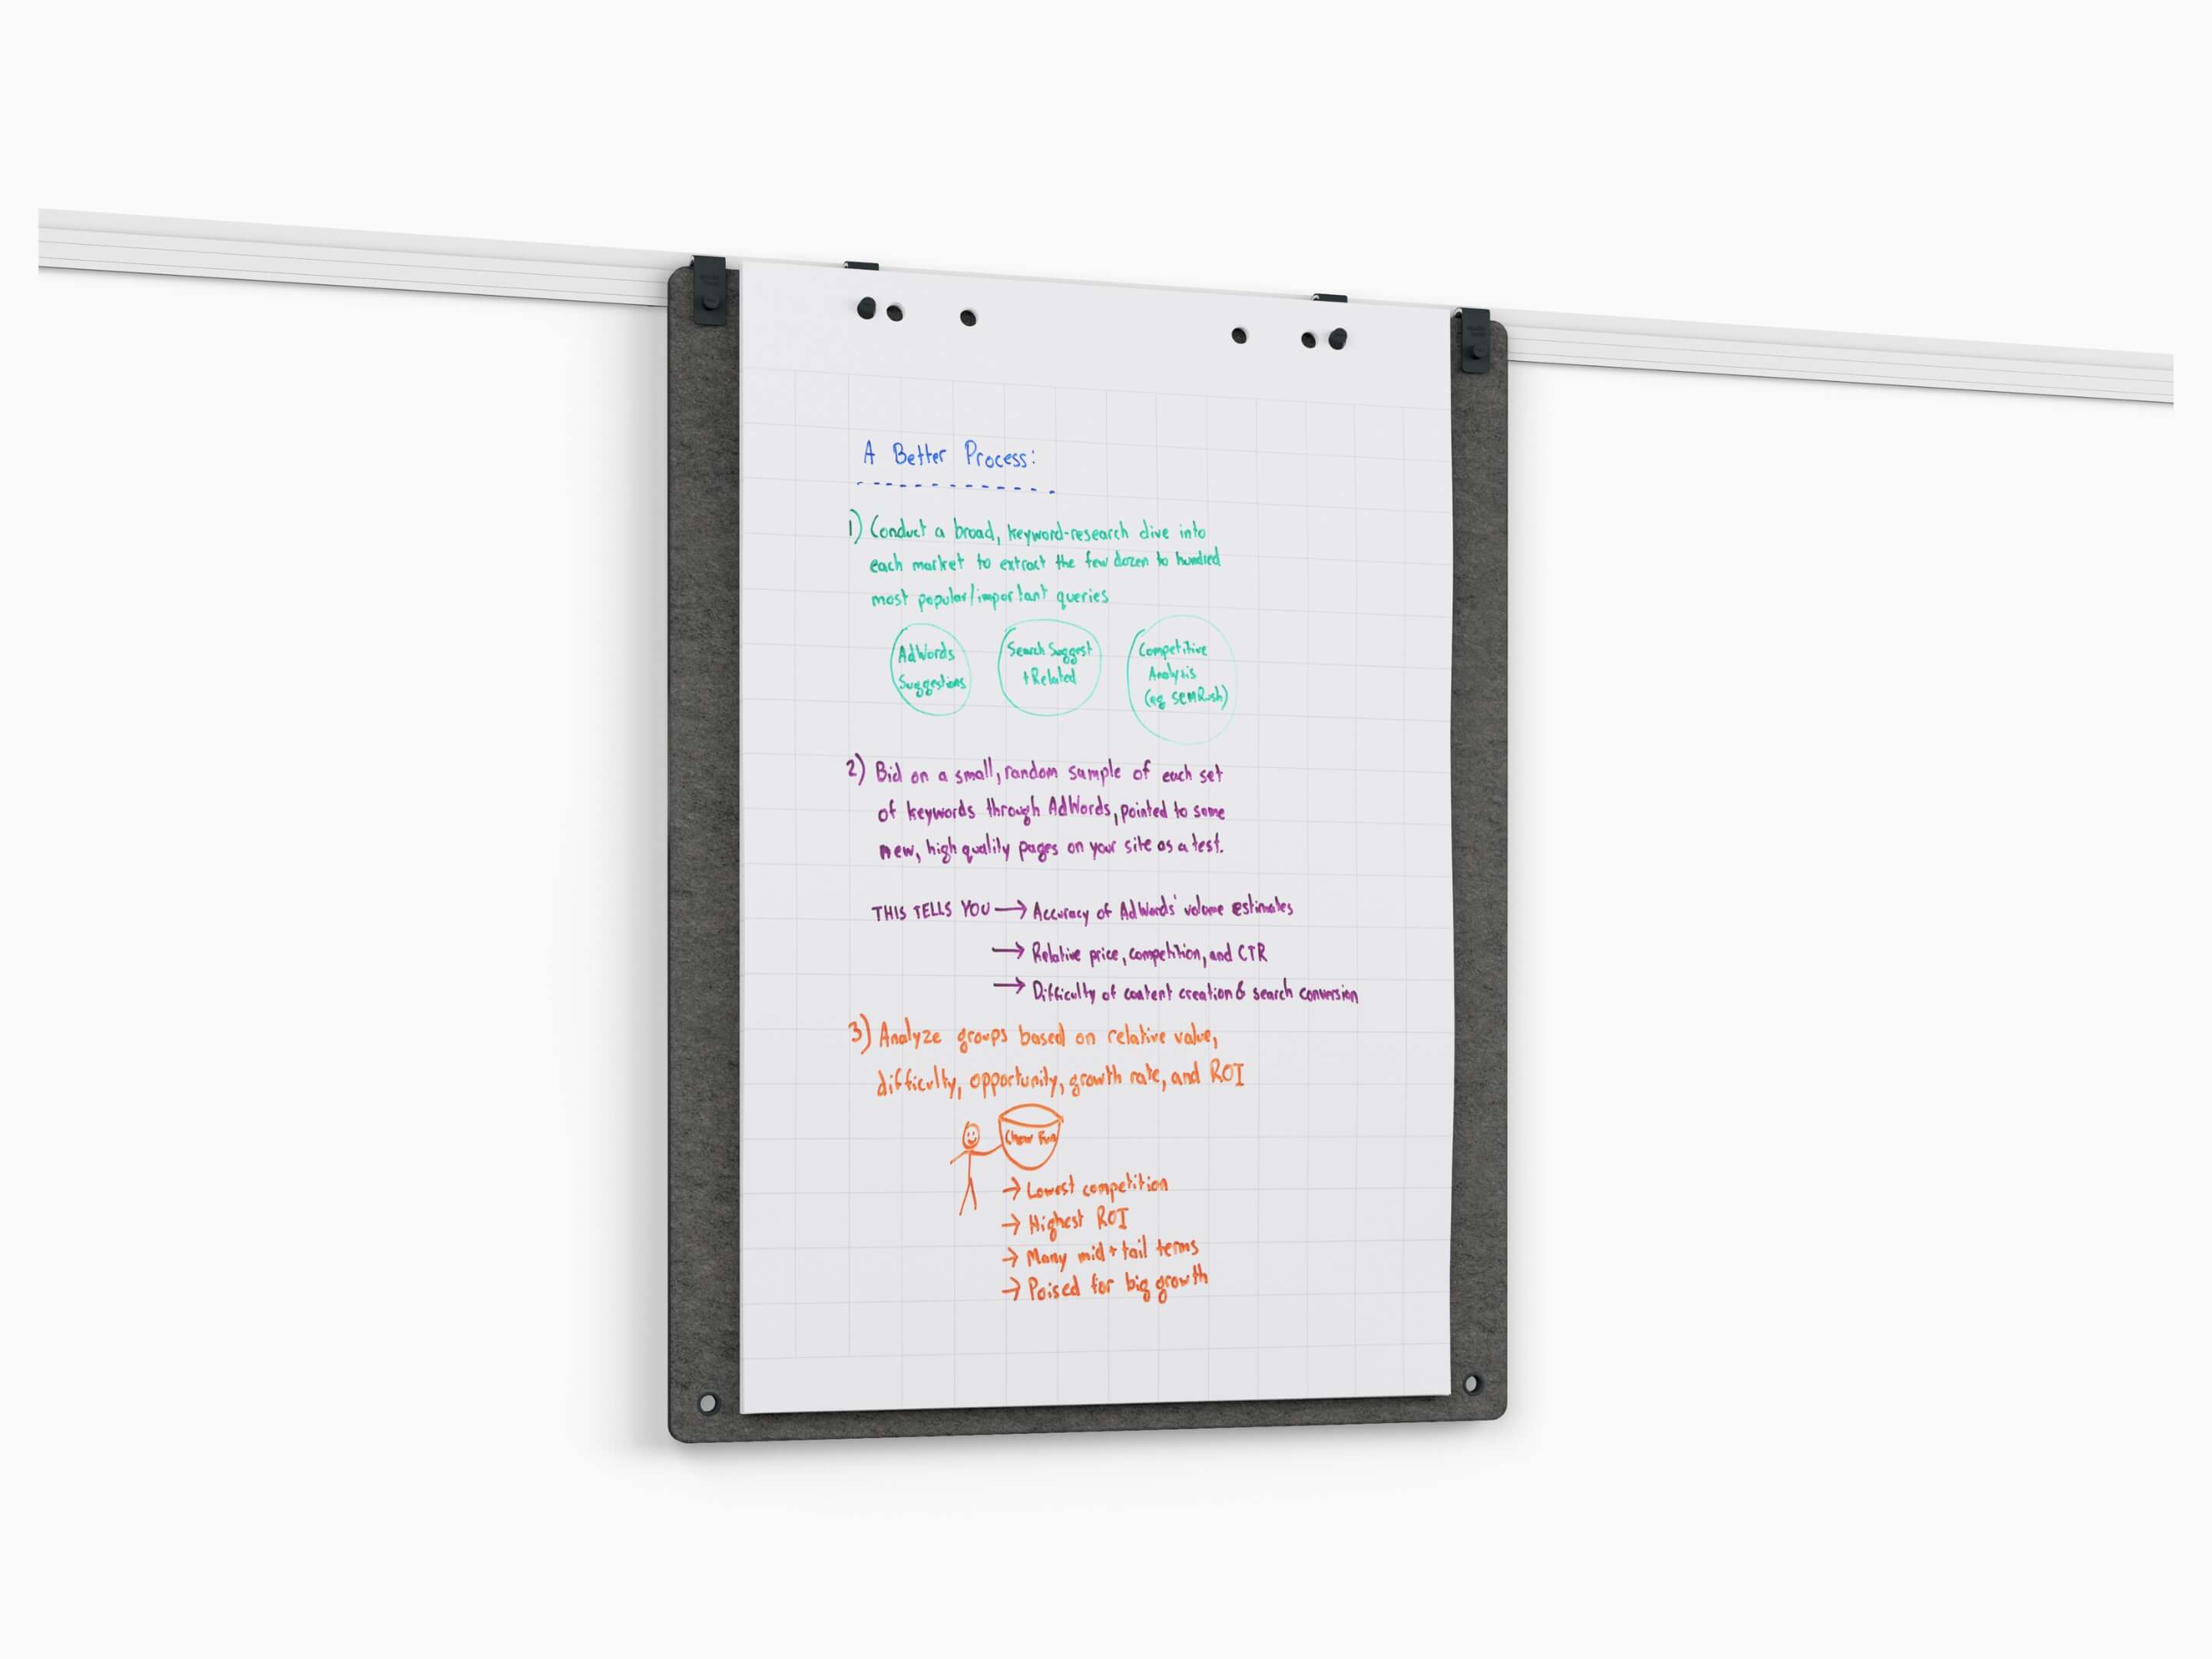 A Better Process:
1) Conduct a broad, keyword-research dive into
each market to extract the few dozen to hundred
most popular/important queries
AdWords
Suggestions
Search Suggest
+Related
Competitive
Analysis
(eg SEMRush)
2) Bid on a small, random sample of each set
of keywords through AdWords, pointed to some
new, high quality pages on your site as a test.
THIS TELLS YOU → Accuracy of AdWords' volume estimates
→ Relative price, competition, and CTR
→ Difficulty of content creation & search conversion
3) Analyze groups based on relative value,
difficulty, opportunity, growth rate, and ROI
Chow Fun
→ Lowest competition
→ Highest ROI
→ Many mid + tail terms
→ Poised for big growth